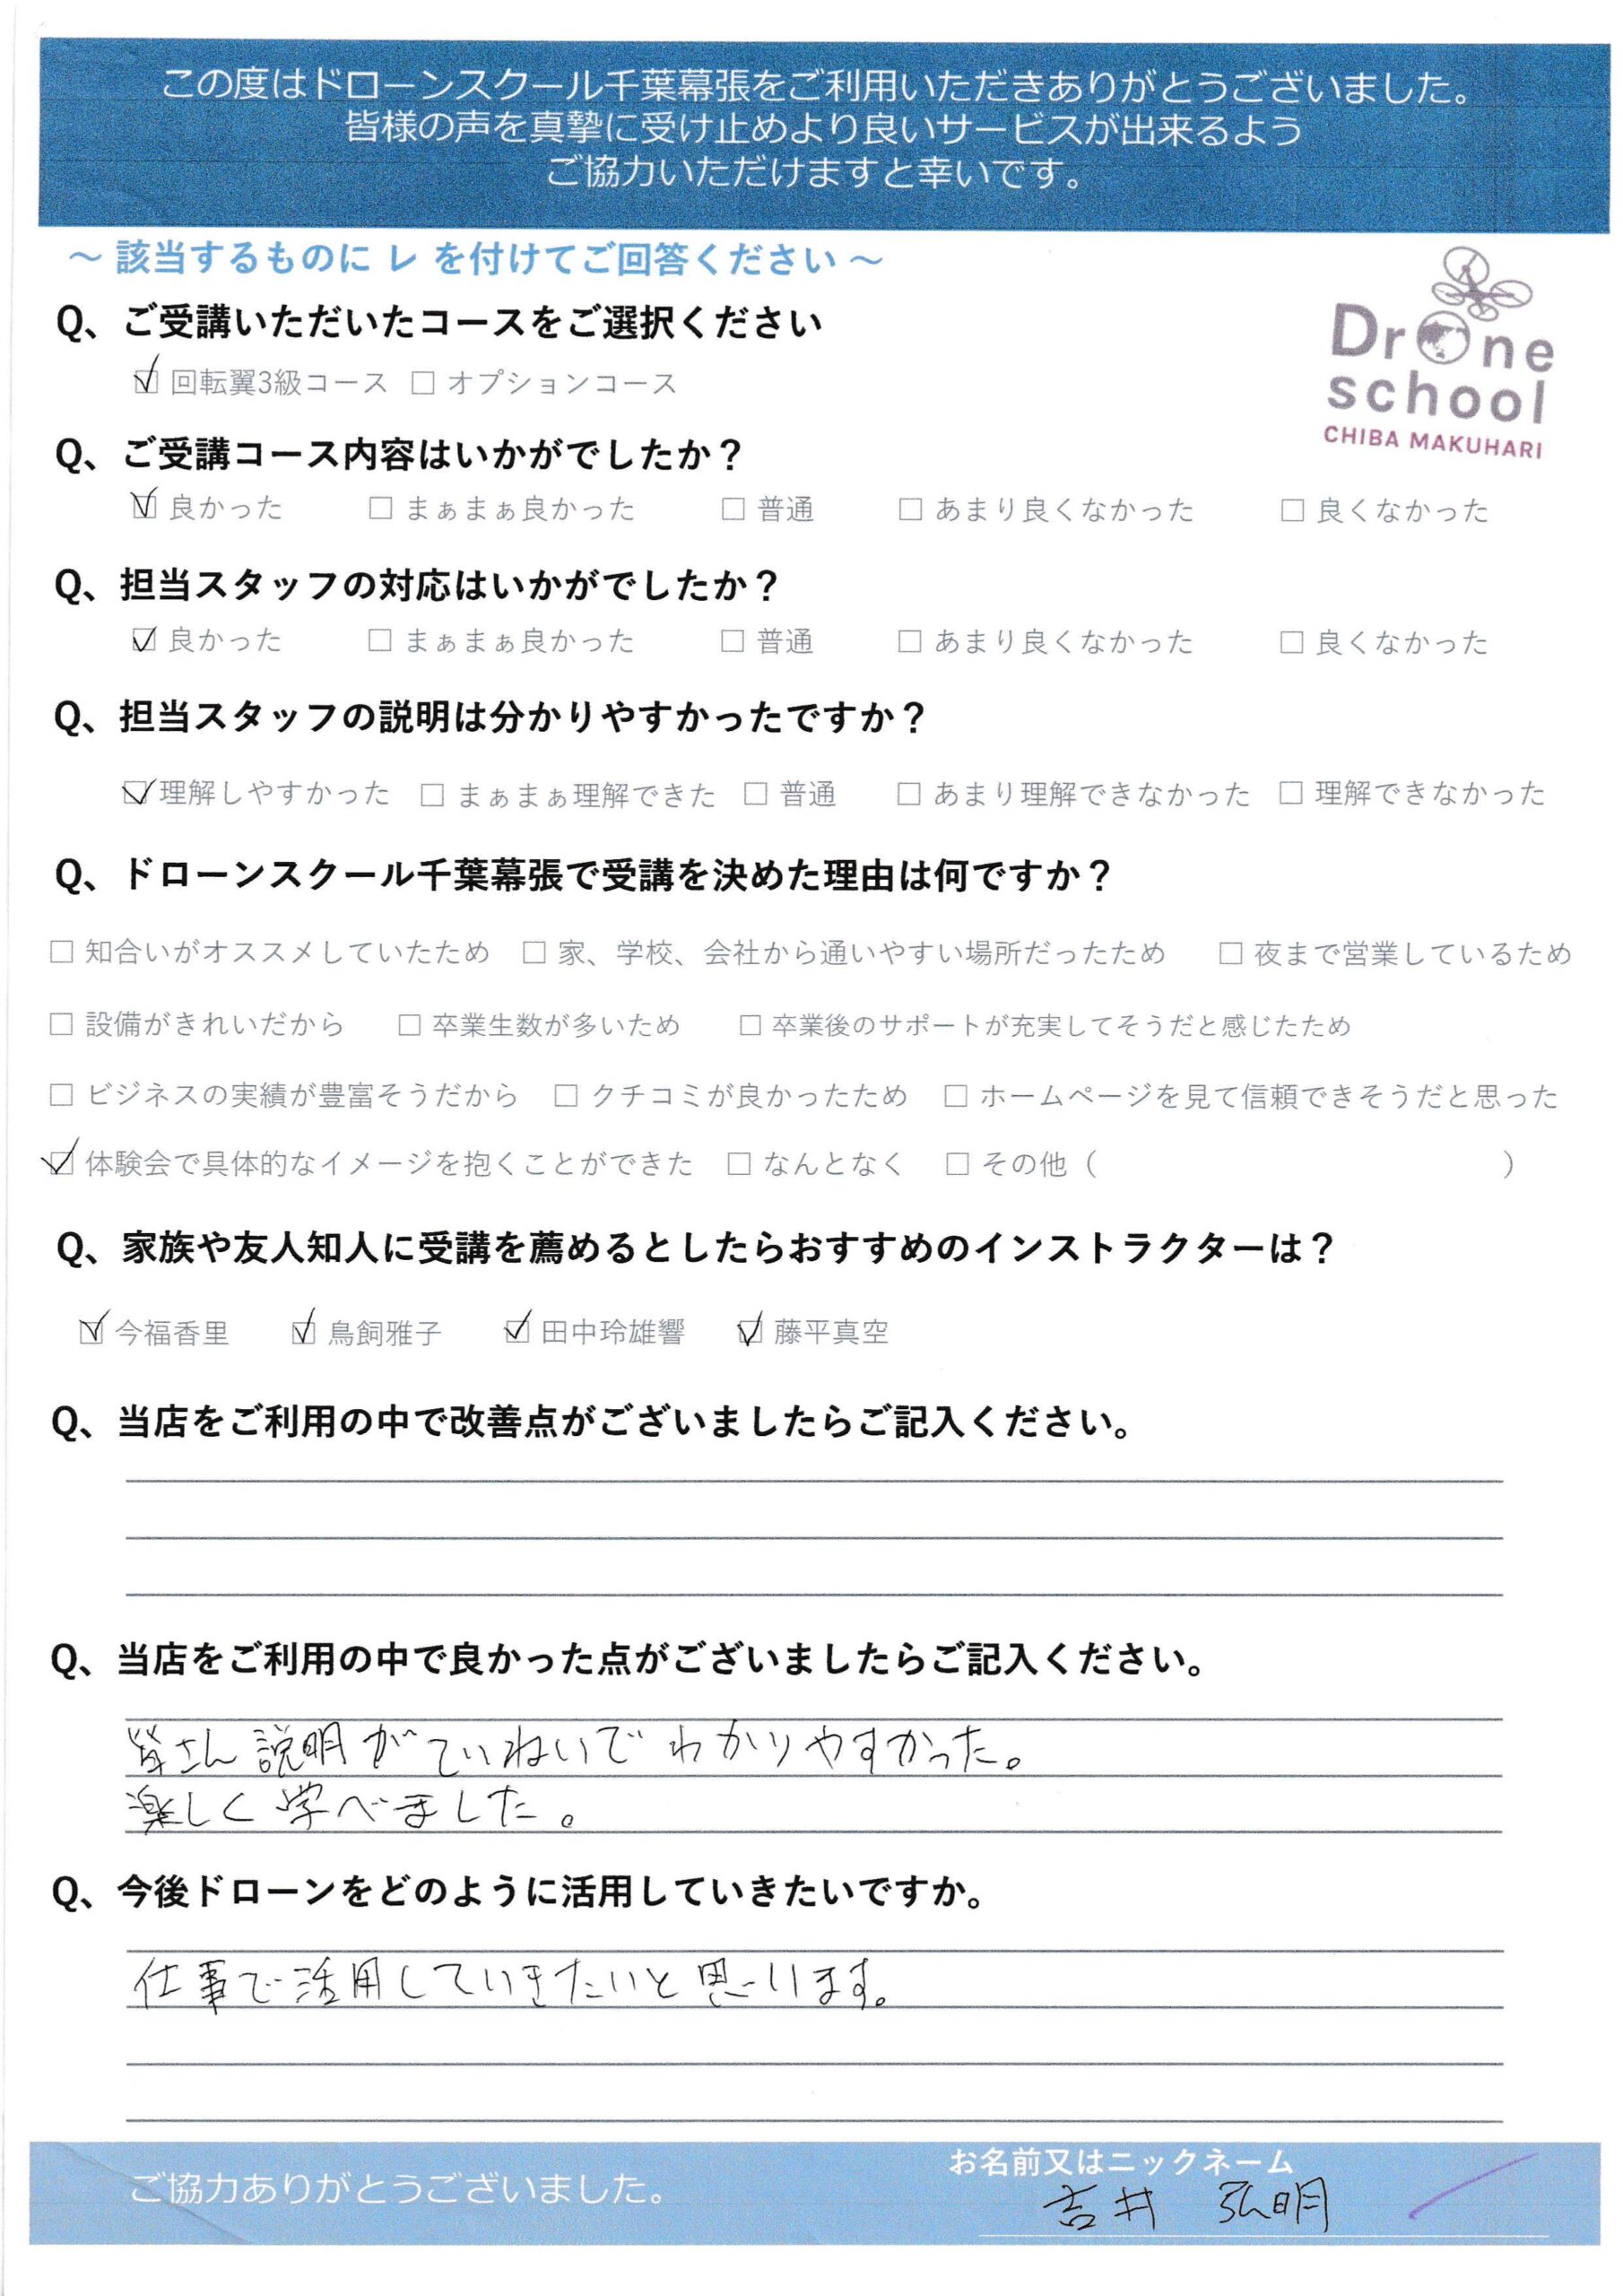 この度はドローンスクール千葉幕張をご利用いただきありがとうございました。
皆様の声を真摯に受け止めより良いサービスが出来るよう
ご協力いただけますと幸いです。
～ 該当するものに レ を付けてご回答ください ～
Drone
school
CHIBA MAKUHARI
Q、ご受講いただいたコースをご選択ください
☑ 回転翼3級コース □ オプションコース
Q、ご受講コース内容はいかがでしたか？
☑ 良かった □ まぁまぁ良かった □ 普通 □ あまり良くなかった □ 良くなかった
Q、担当スタッフの対応はいかがでしたか？
☑ 良かった □ まぁまぁ良かった □ 普通 □ あまり良くなかった □ 良くなかった
Q、担当スタッフの説明は分かりやすかったですか？
☑ 理解しやすかった □ まぁまぁ理解できた □ 普通 □ あまり理解できなかった □ 理解できなかった
Q、ドローンスクール千葉幕張で受講を決めた理由は何ですか？
□ 知合いがオススメしていたため □ 家、学校、会社から通いやすい場所だったため □ 夜まで営業しているため
□ 設備がきれいだから □ 卒業生数が多いため □ 卒業後のサポートが充実してそうだと感じたため
□ ビジネスの実績が豊富そうだから □ クチコミが良かったため □ ホームページを見て信頼できそうだと思った
☑ 体験会で具体的なイメージを抱くことができた □ なんとなく □ その他（ ）
Q、家族や友人知人に受講を薦めるとしたらおすすめのインストラクターは？
☑ 今福香里 ☑ 鳥飼雅子 ☑ 田中玲雄響 ☑ 藤平真空
Q、当店をご利用の中で改善点がございましたらご記入ください。
Q、当店をご利用の中で良かった点がございましたらご記入ください。
皆さん説明がていねいでわかりやすかった。
楽しく学べました。
Q、今後ドローンをどのように活用していきたいですか。
仕事で活用していきたいと思います。
ご協力ありがとうございました。
お名前又はニックネーム
吉井 弘明